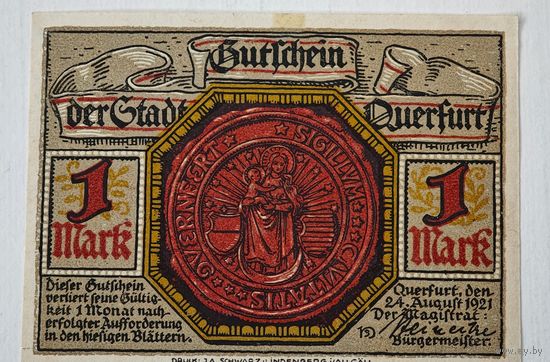 Gutschein
der Stadt Querfurt
1 Mark
1 Mark
SIGILLVM CIVITATIS QVERNFERT
Dieser Gutschein
verliert seine Gültig-
keit 1 Monat nach
erfolgter Aufforderung
in den hiesigen Blättern.
Querfurt, den
24. August 1921
Der Magistrat:
Bürgermeister.
DRUCK: J.A. SCHWARZ, LINDENBERG
ay.by